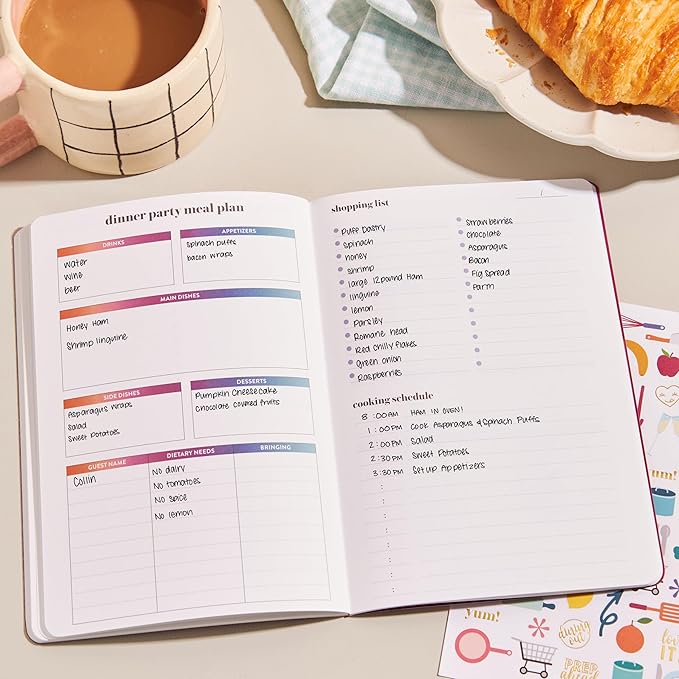 dinner party meal plan
DRINKS
Water
Wine
beer
APPETIZERS
Spinach puffs
bacon wraps
MAIN DISHES
Honey Ham
Shrimp linguine
SIDE DISHES
Asparagus Wraps
Salad
Sweet Potatoes
DESSERTS
Pumpkin Cheesecake
Chocolate covered fruits
GUEST NAME
Collin
DIETARY NEEDS
No dairy
No tomatoes
No spice
No lemon
BRINGING
shopping list
Puff Pastry
Spinach
honey
Shrimp
large 12pound Ham
linguine
lemon
Parsley
Romane head
Red Chilly flakes
Green onion
Raspberries
Strawberries
Chocolate
Asparagus
Bacon
Fig Spread
Parm
cooking schedule
8:00AM HAM IN OVEN!
1:00PM Cook Asparagus & Spinach Puffs
2:00PM Salad
2:30PM Sweet Potatoes
3:30PM Set up Appetizers
yum!
yum!
dining out
PREP AHEAD